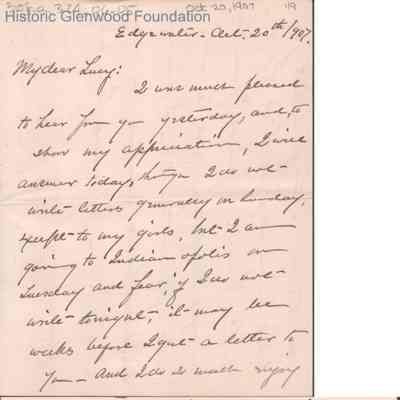 Historic Glenwood Foundation
Oct 20, 1907
19
Edgewater - Oct. 20th/907.
My dear Lucy:
I was much pleased
to hear from you yesterday, and, to
show my appreciation, I will
answer today, though I do not
write letters generally on Sunday,
except to my girls, but I am
going to Indianapolis on
Tuesday and fear, if I do not
write tonight, it may be
weeks before I get a letter to
you - And I do so much enjoy